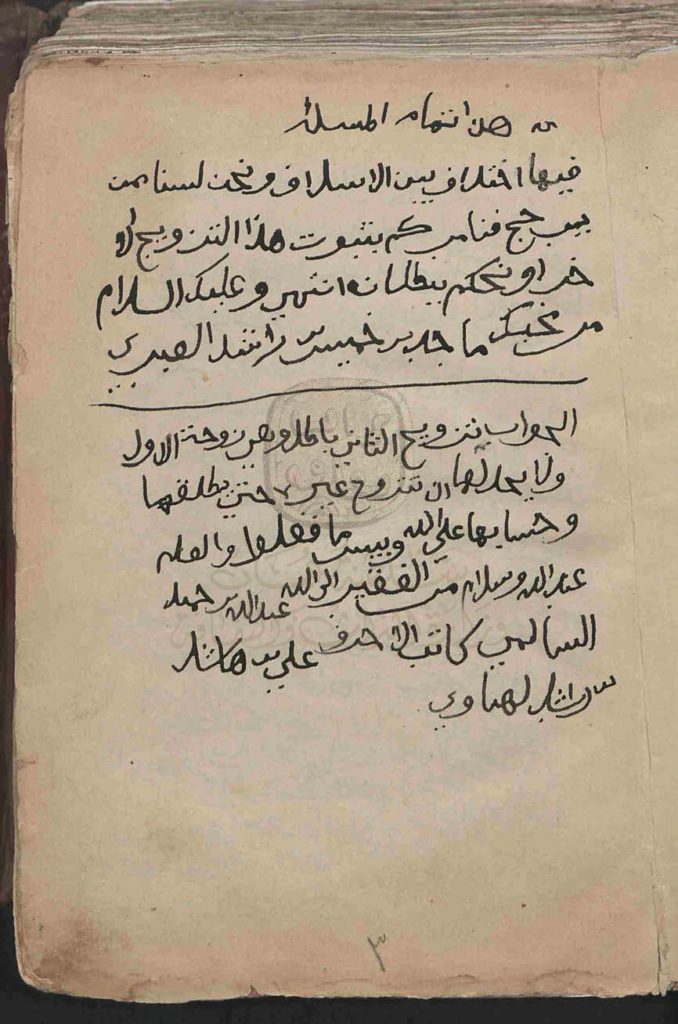 هذا تمام المسئلة
فيها اختلاف بين الاسلاف ونحن لسنا ممن
يرجح فتامركم بثبوت هذا التزويج أو
خذ او نحكم ببطلانه انتهى وعليك السلام
من محبك ماجد بن خميس بن راشد العبري
الجواب تزويج الثاني باطل وهي زوجة الاول
ولا يحل لها ان تتزوج غيره حتى يطلقها
وحسابها على الله وبيس ما فعلوا والعلم
عند الله وسلام من الفقير الى الله عبدالله بن حميد
السالمي كاتب الاحرف علي بن هاشل
بن راشد لهناوي
٣